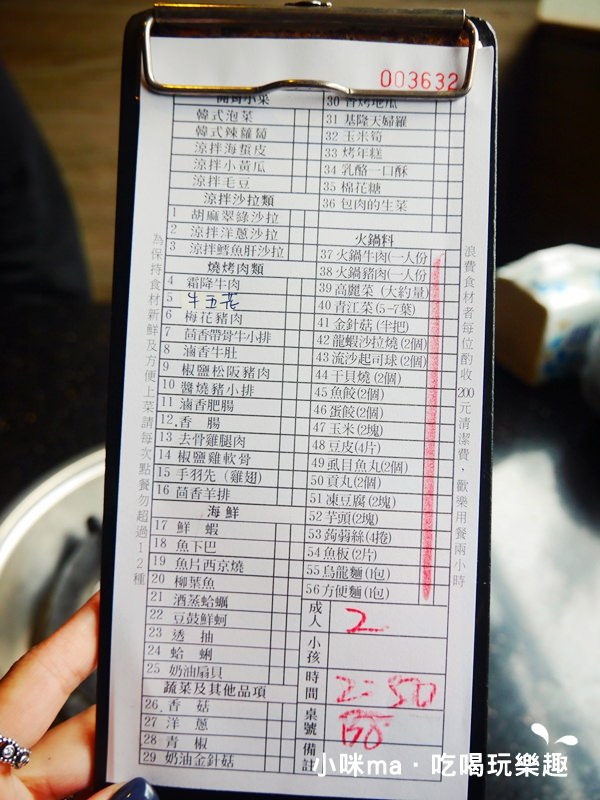 003632
開胃小菜
韓式泡菜
韓式辣蘿蔔
涼拌海蜇皮
涼拌小黃瓜
涼拌毛豆
涼拌沙拉類
1 胡麻翠綠沙拉
2 涼拌洋蔥沙拉
3 涼拌鱈魚肝沙拉
燒烤肉類
4 霜降牛肉
5 牛五花
6 梅花豬肉
7 茴香帶骨牛小排
8 滷香牛肚
9 椒鹽松阪豬肉
10 醬燒豬小排
11 滷香肥腸
12 香 腸
13 去骨雞腿肉
14 椒鹽雞軟骨
15 手羽先（雞翅）
16 茴香羊排
海鮮
17 鮮 蝦
18 魚下巴
19 魚片西京燒
20 柳葉魚
21 酒蒸蛤蠣
22 豆鼓鮮蚵
23 透 抽
24 蛤 蜊
25 奶油扇貝
蔬菜及其他品項
26 香 菇
27 洋 蔥
28 青 椒
29 奶油金針菇
30 香烤地瓜
31 基隆天婦羅
32 玉米筍
33 烤年糕
34 乳酪一口酥
35 棉花糖
36 包肉的生菜
火鍋料
37 火鍋牛肉(一人份)
38 火鍋豬肉(一人份)
39 高麗菜 (大約量)
40 青江菜(5-7葉)
41 金針菇 (半把)
42 龍蝦沙拉燒(2個)
43 流沙起司球(2個)
44 干貝燒 (2個)
45 魚餃(2個)
46 蛋餃(2個)
47 玉米(2塊)
48 豆皮(4片)
49 虱目魚丸(2個)
50 貢丸(2個)
51 凍豆腐(2塊)
52 芋頭(2塊)
53 蒟蒻絲(4捲)
54 魚板(2片)
55 烏龍麵(1包)
56 方便麵(1包)
成人 2
小孩
時間 2:50
桌號
備註
為保持食材新鮮及方便上菜請每次點餐勿超過12種
浪費食材者每位酌收200元清潔費，歡樂用餐兩小時
小咪ma‧吃喝玩樂趣